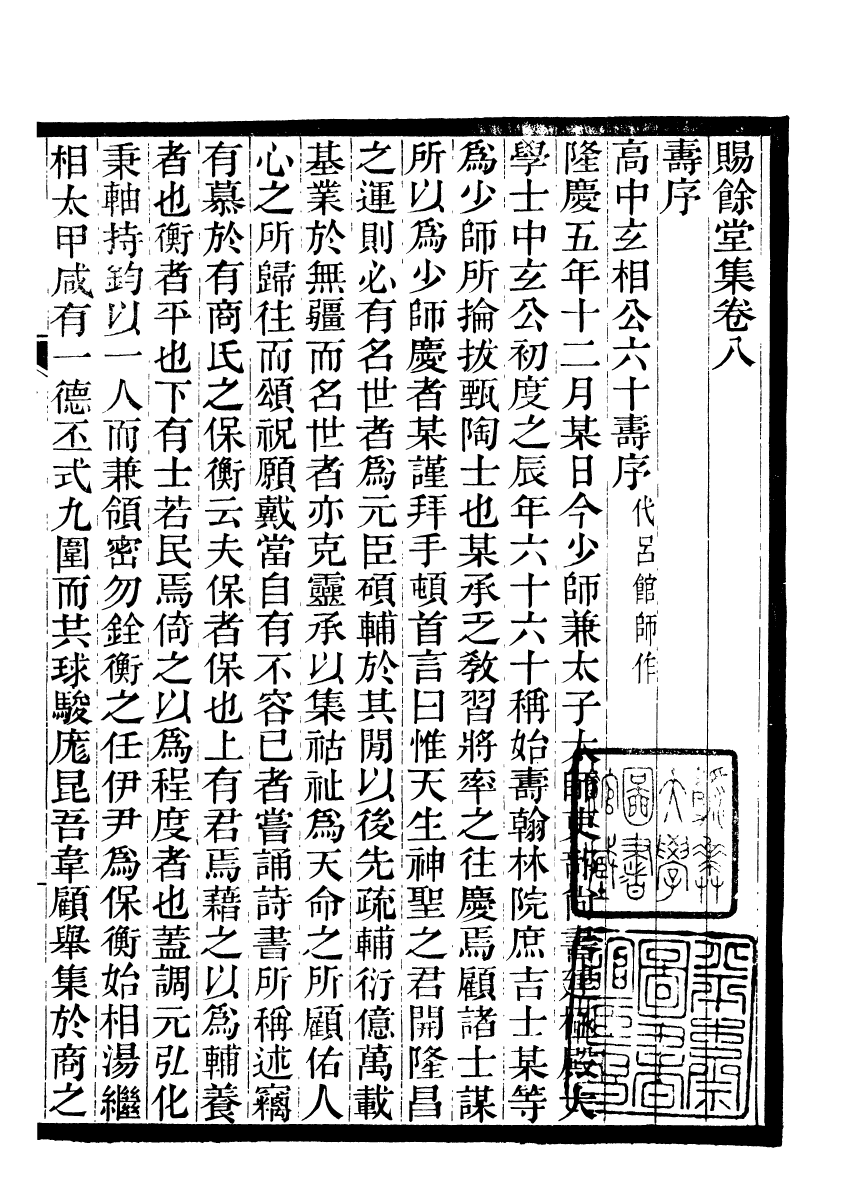 賜餘堂集卷八
壽序
高中玄相公六十壽序代呂館師作
隆慶五年十二月某日今少師兼太子太師吏部尚書建極殿大
學士中玄公初度之辰年六十六十稱始壽翰林院庶吉士某等
爲少師所掄拔甄陶士也某承乏敎習將率之往慶焉顧諸士謀
所以爲少師慶者某謹拜手頓首言曰惟天生神聖之君開隆昌
之運則必有名世者爲元臣碩輔於其閒以後先疏輔衍億萬載
基業於無疆而名世者亦克靈承以集祜祉爲天命之所顧佑人
心之所歸往而頌祝願戴當自有不容已者嘗誦詩書所稱述竊
有慕於有商氏之保衡云夫保者保也上有君焉藉之以爲輔養
者也衡者平也下有士若民焉倚之以爲程度者也蓋調元弘化
秉軸持鈞以一人而兼領密勿銓衡之任伊尹爲保衡始相湯繼
相太甲咸有一德丕式九圍而共球駿厖昆吾韋顧舉集於商之